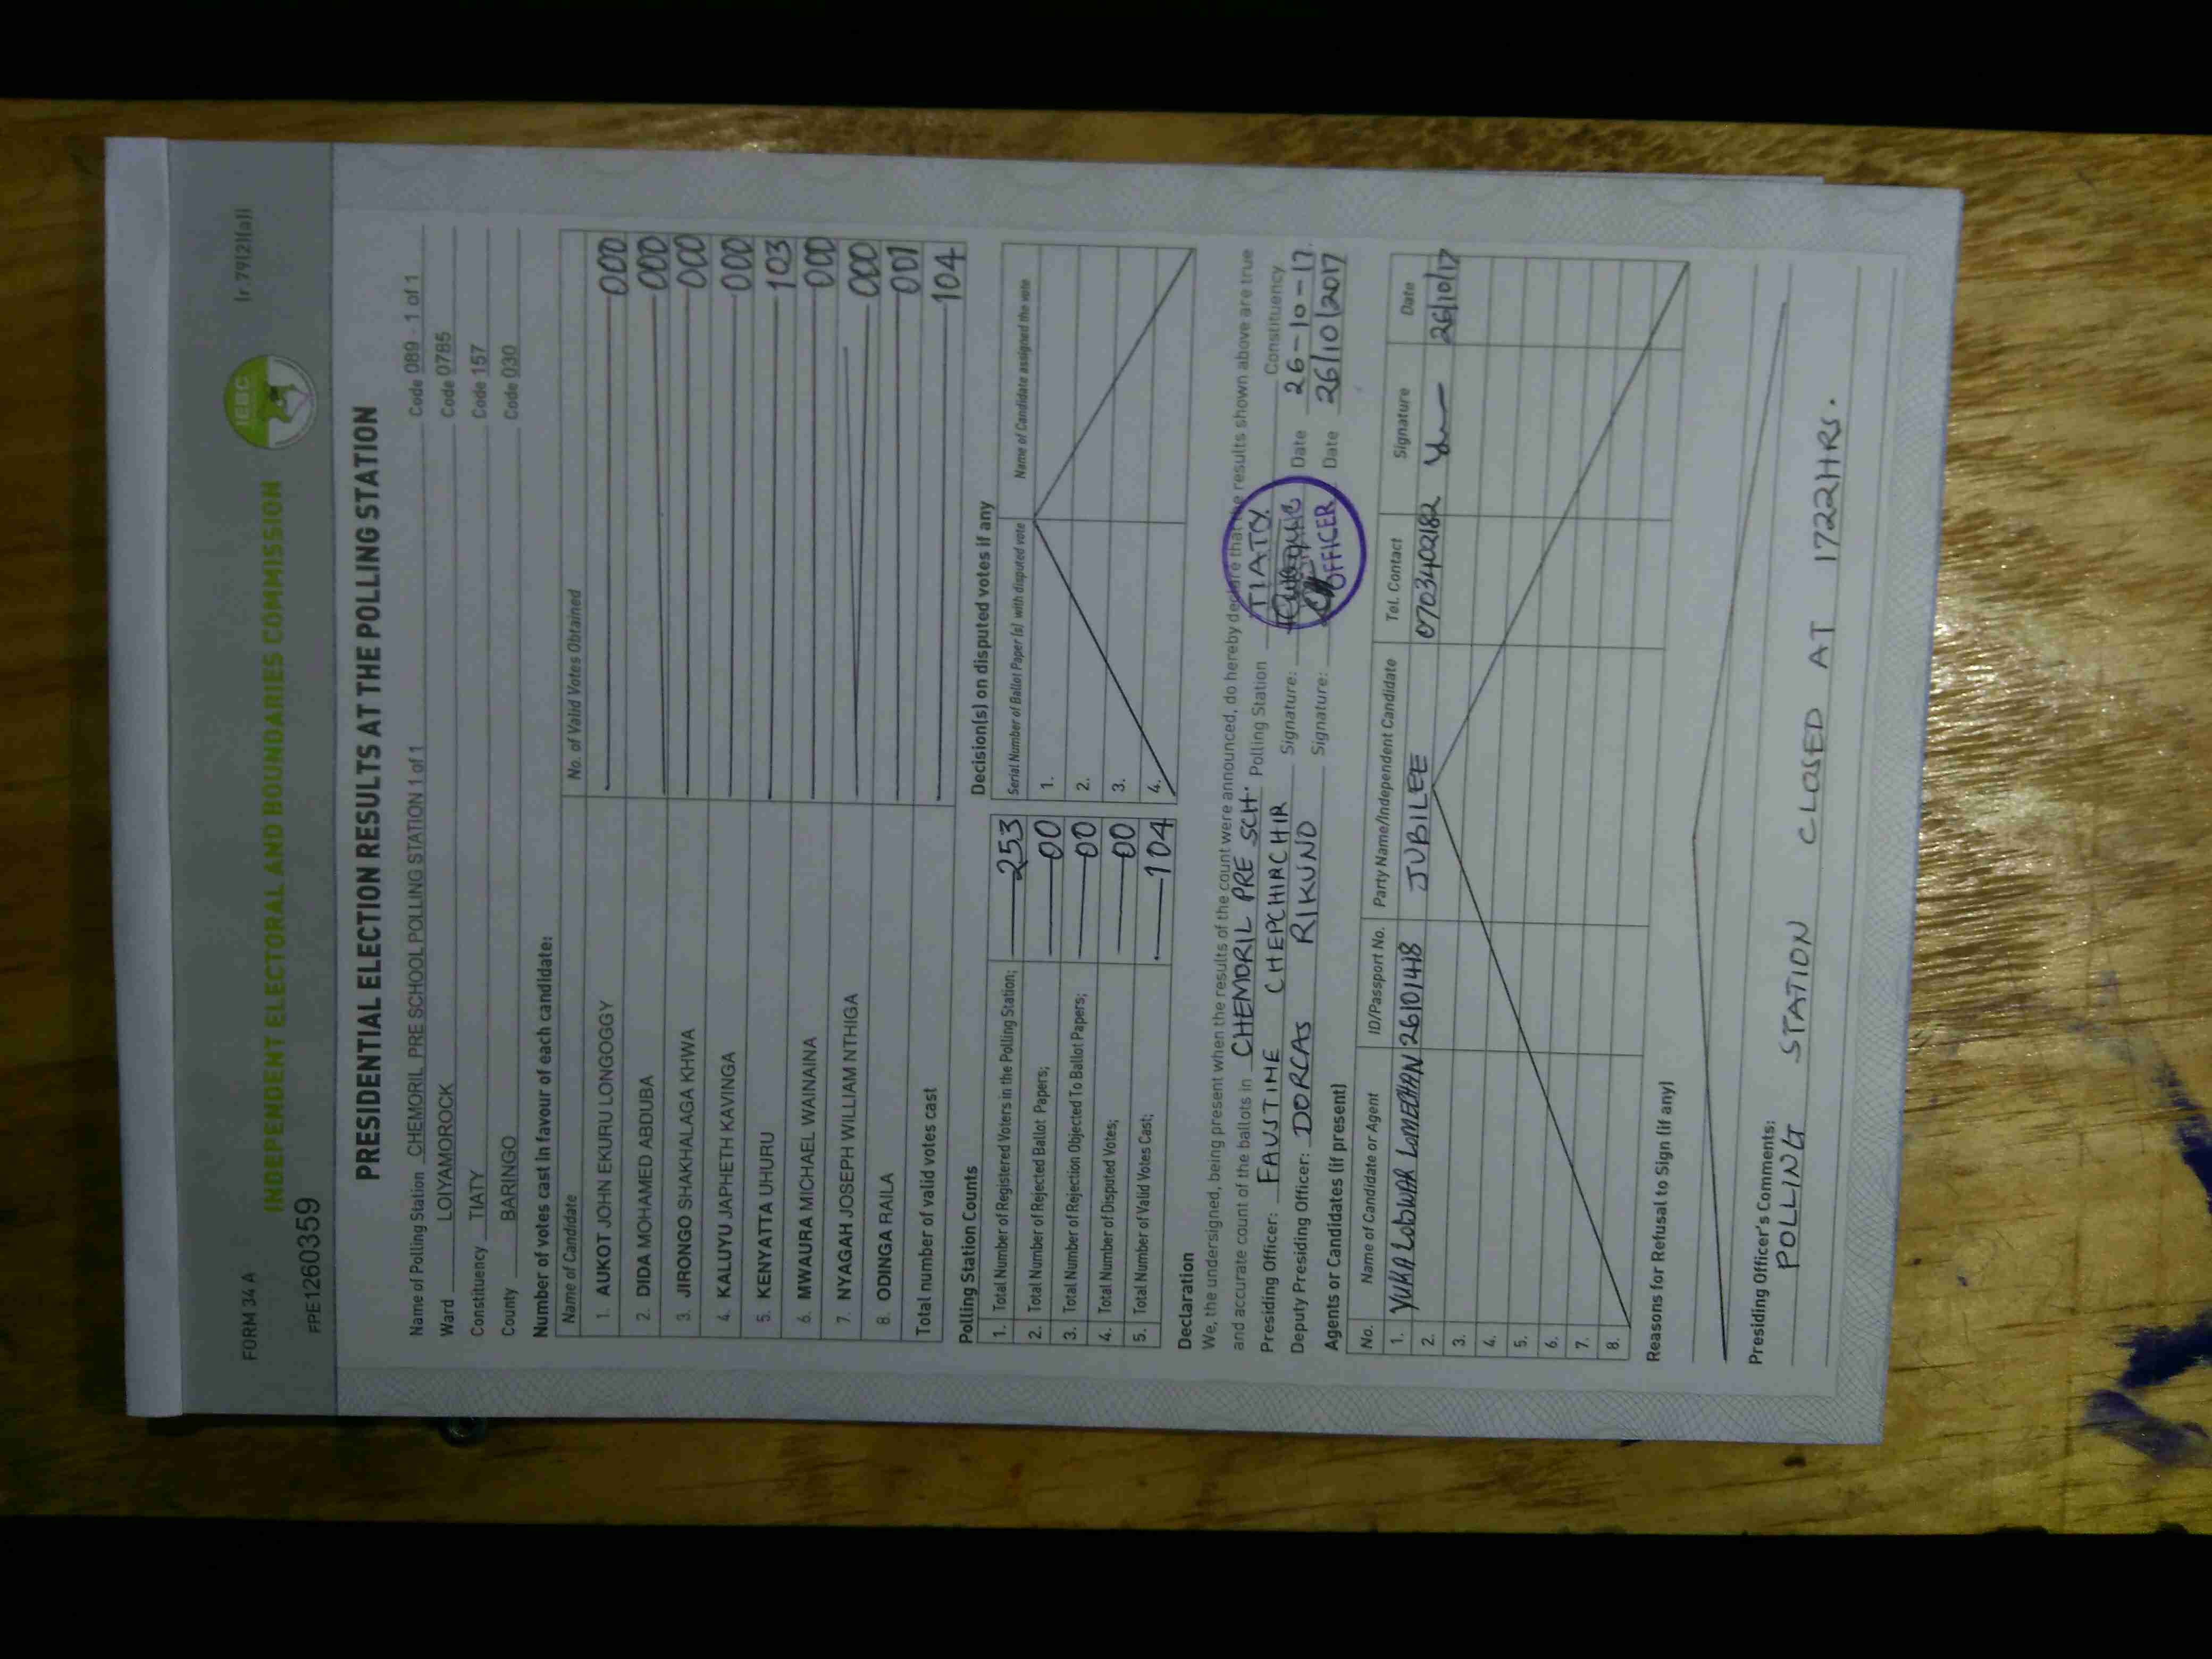 FORM 34 A
[r 79(2)(a)]
IEBC
INDEPENDENT ELECTORAL AND BOUNDARIES COMMISSION
FPE1260359
PRESIDENTIAL ELECTION RESULTS AT THE POLLING STATION
Name of Polling Station CHEMORIL PRE SCHOOL POLLING STATION 1 of 1 Code 089 - 1 of 1
Ward LOIYAMOROCK Code 0785
Constituency TIATY Code 157
County BARINGO Code 030
Number of votes cast in favour of each candidate:
Name of Candidate No. of Valid Votes Obtained
1. AUKOT JOHN EKURU LONGOGGY 000
2. DIDA MOHAMED ABDUBA 000
3. JIRONGO SHAKHALAGA KHWA 000
4. KALUYU JAPHETH KAVINGA 000
5. KENYATTA UHURU 103
6. MWAURA MICHAEL WAINAINA 000
7. NYAGAH JOSEPH WILLIAM NTHIGA 000
8. ODINGA RAILA 001
Total number of valid votes cast 104
Polling Station Counts
1. Total Number of Registered Voters in the Polling Station; 253
2. Total Number of Rejected Ballot Papers; 00
3. Total Number of Rejection Objected To Ballot Papers; 00
4. Total Number of Disputed Votes; 00
5. Total Number of Valid Votes Cast; 104
Decision(s) on disputed votes if any
Serial Number of Ballot Paper (s) with disputed vote Name of Candidate assigned the vote
1.
2.
3.
4.
Declaration
We, the undersigned, being present when the results of the count were announced, do hereby declare that the results shown above are true
and accurate count of the ballots in CHEMORIL PRE SCH. Polling Station TIATY Constituency
Presiding Officer: FAUSTINE CHEPCHIRCHIR Signature: Date 26-10-17
Deputy Presiding Officer: DORCAS RIKUNO Signature: OFFICER Date 26/10/2017
Agents or Candidates (if present)
No. Name of Candidate or Agent ID/Passport No. Party Name/Independent Candidate Tel. Contact Signature Date
1. YUKA LOBWAR 26101418 JUBILEE 0703402182 26/10/17
2.
3.
4.
5.
6.
7.
8.
Reasons for Refusal to Sign (if any)
Presiding Officer's Comments:
POLLING STATION CLOSED AT 1722HRS.